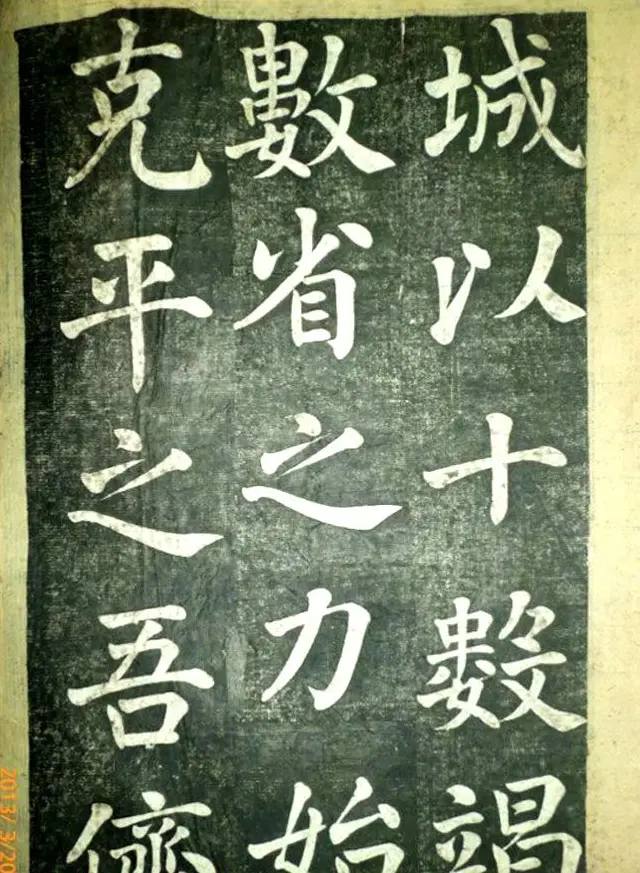 城以十數竭
數省之力始
克平之吾儕
2013/3/20